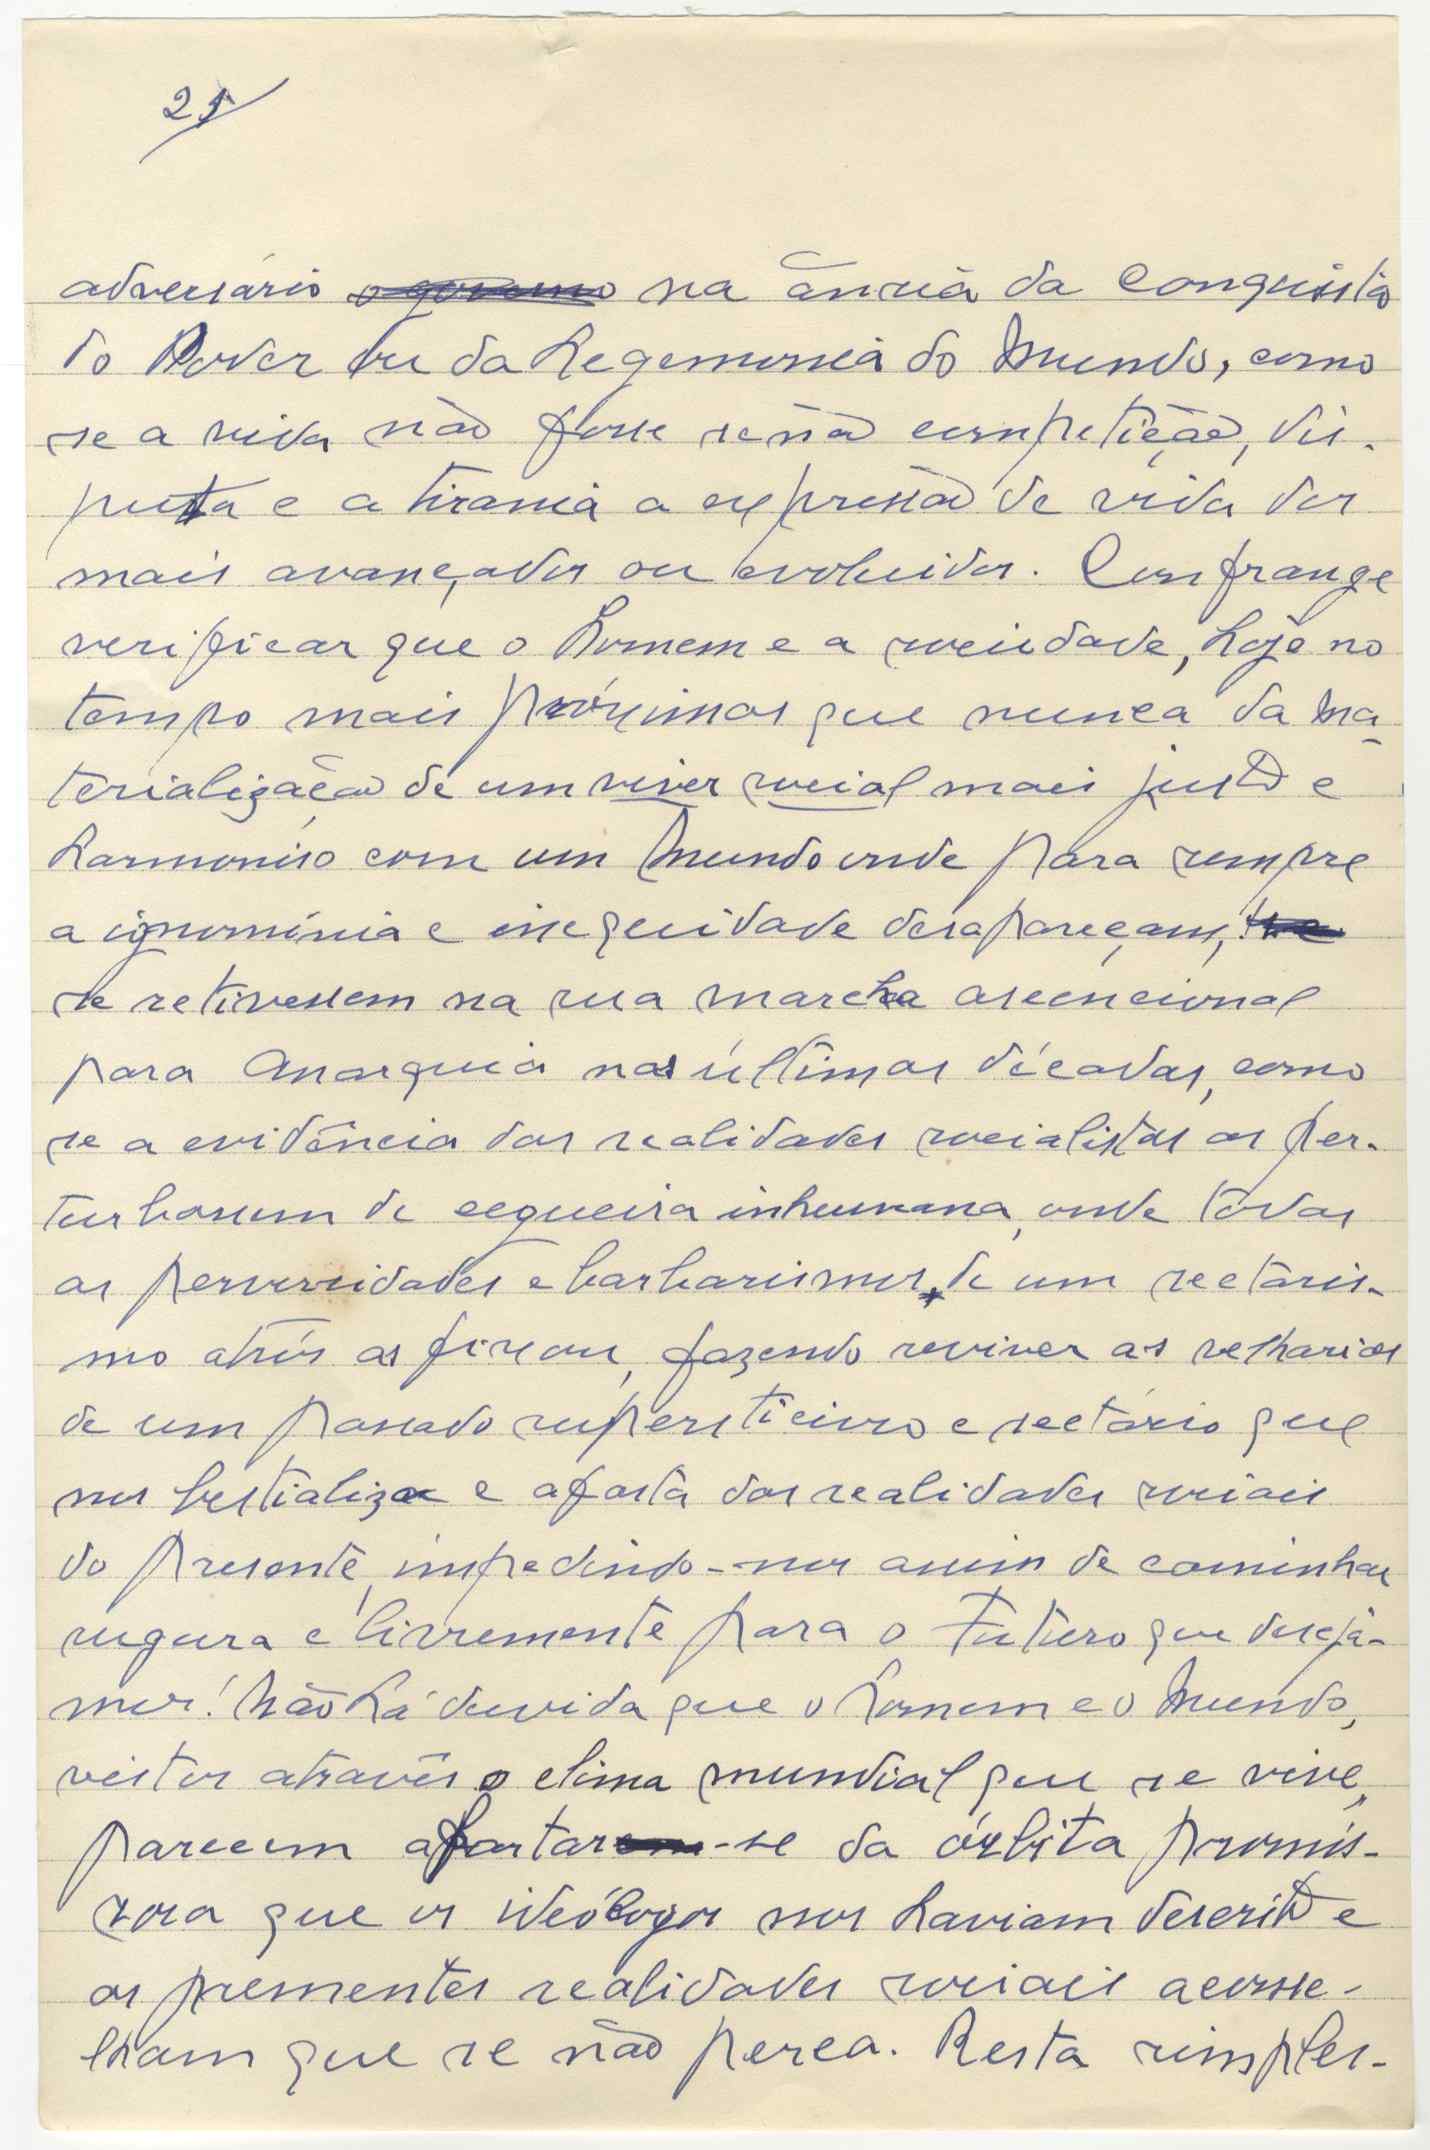 25
adversário o governo na ânsia da Conquista
do Poder ou da hegemonia do Mundo, como
se a vida não fosse senão competição, dis-
puta e a tirania a expressão de vida dos
mais avançados ou evoluidos. Confrange
verificar que o homem e a sociedade, hoje no
tempo mais próximos que nunca da ma-
terialização de um viver social mais justo e
harmonioso com um Mundo onde para sempre
a ignomínia e iniquidade desapareçam,
se retivessem na sua marcha ascencional
para Anarquia nas últimas décadas, como
se a evidência das realidades socialistas os per-
turbassem de cegueira inhumana, onde todas
as perversidades e barbarismos de um sectaris-
mo atrós os fixou, fazendo reviver as velharias
de um passado supersticioso e sectário que
nos bestializa e afasta das realidades sociais
do presente, impedindo-nos assim de caminhar
segura e livremente para o Futuro que deseja-
mos! Não há duvida que o homem e o Mundo,
vistos através o clima mundial que se vive,
parecem afastarem-se da órbita promis-
sora que os ideólogos nos haviam descrito e
as prementes realidades sociais aconse-
lham que se não perca. Resta simples-